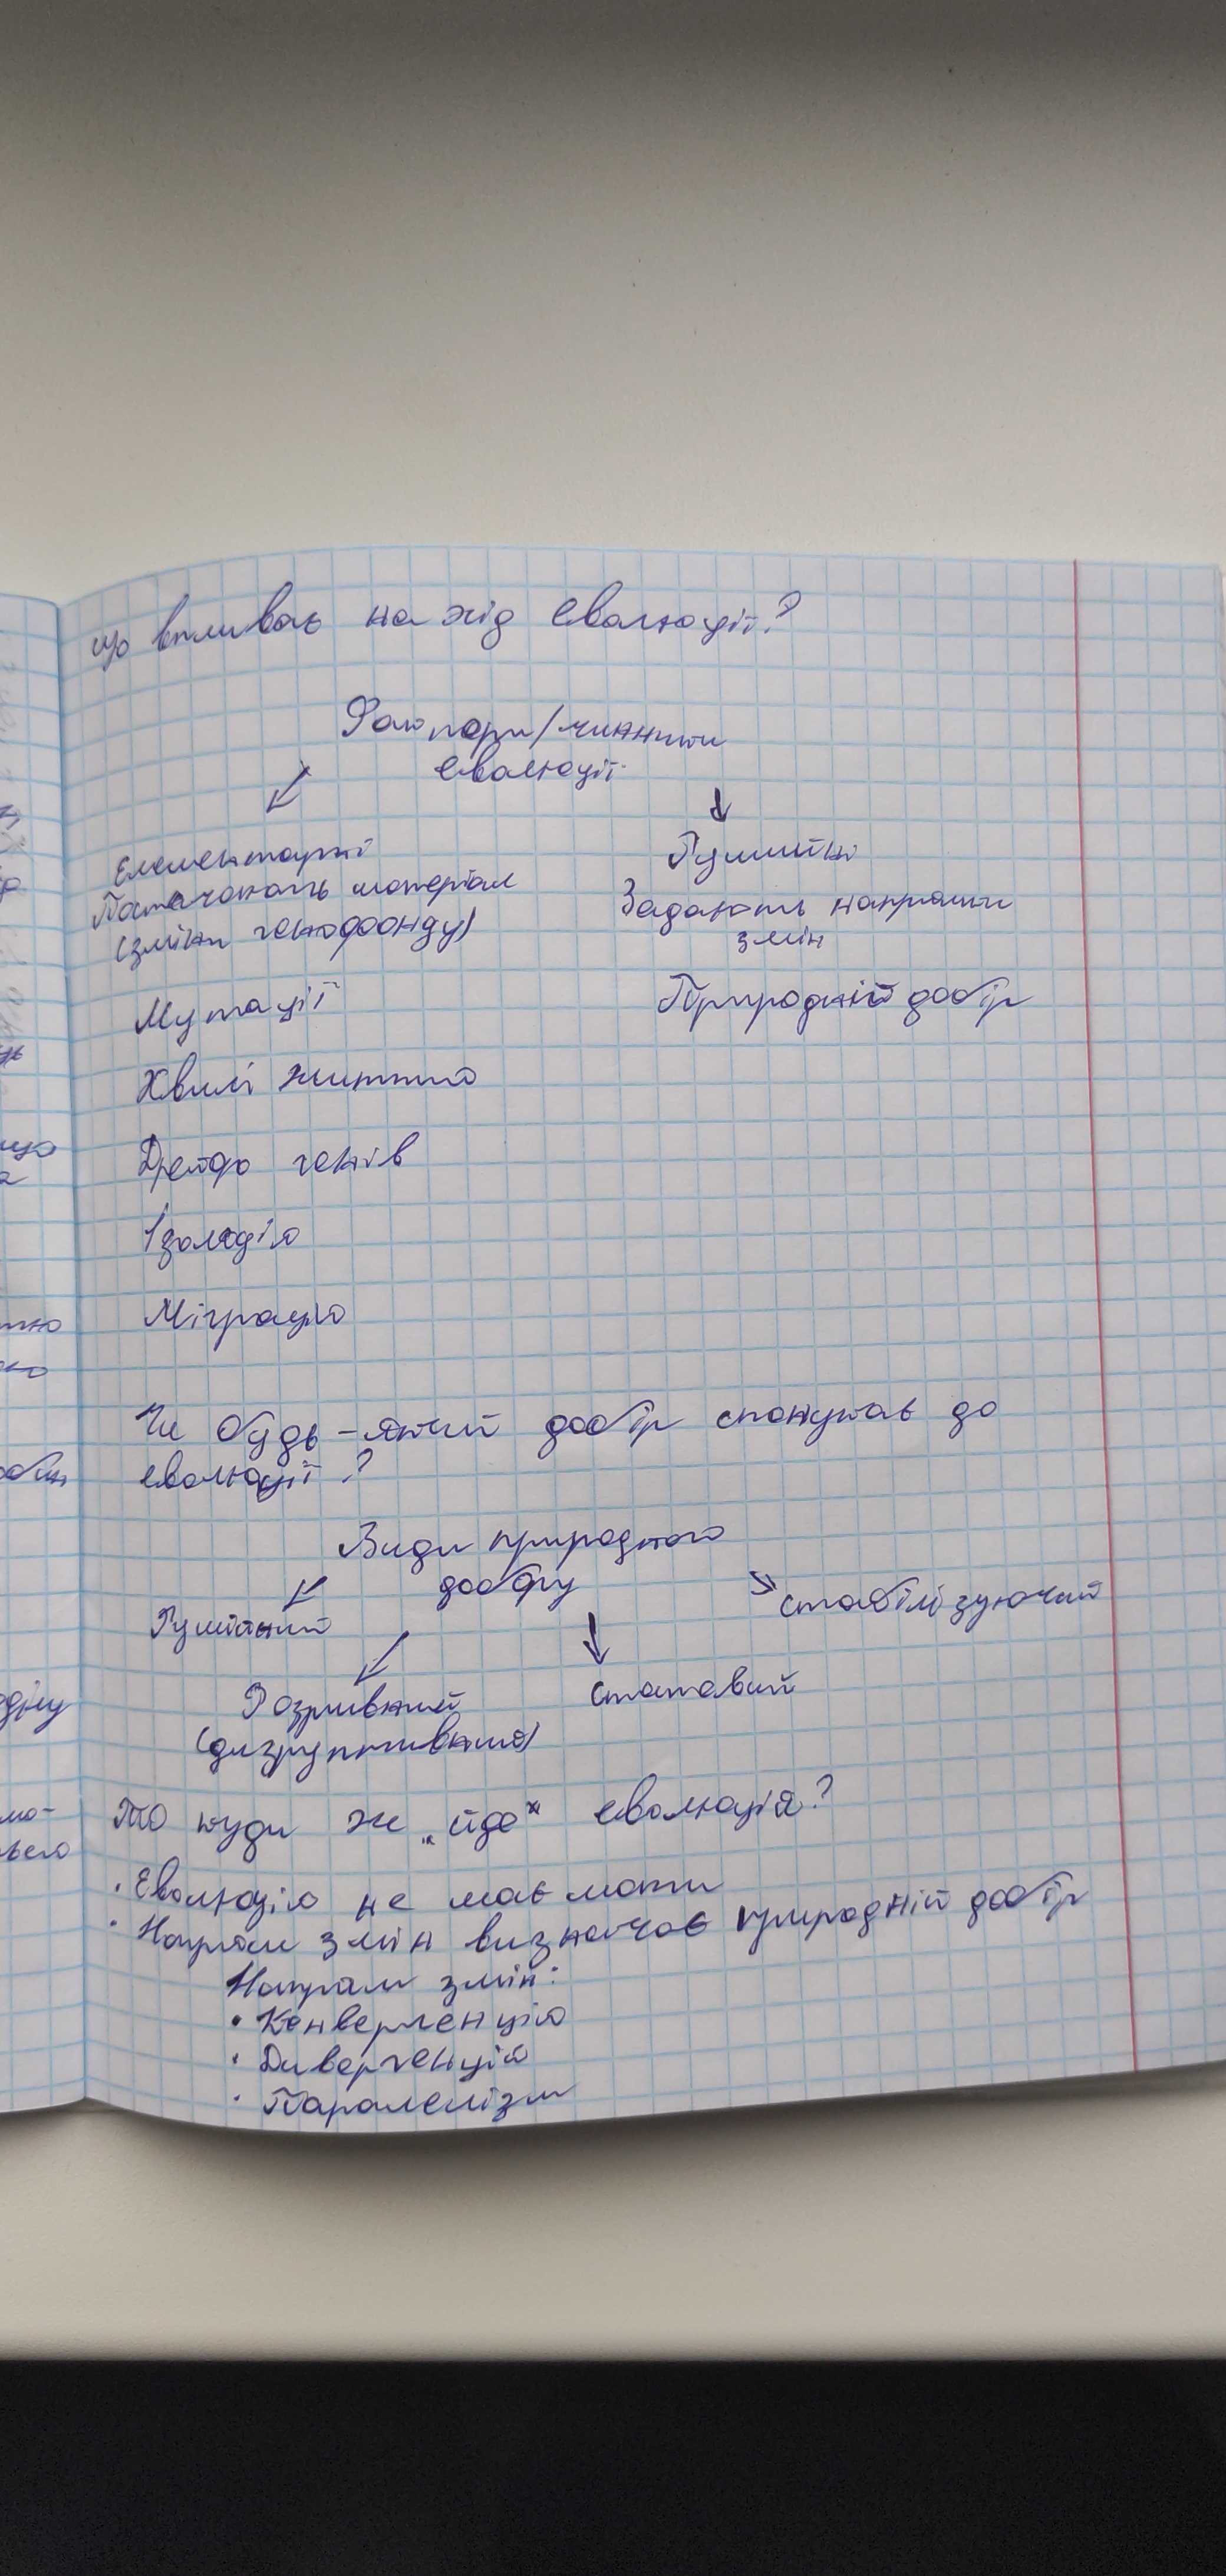 що впливає на хід еволюції?
Фактори/чинники
еволюції
Елементарні
Постачають матеріал
(зміни генофонду)
Рушійні
Задають напрямки
змін
Мутації
Природній добір
Хвилі життя
Дрейф генів
Ізоляція
Міграція
Чи будь-який добір спонукає до
еволюції?
Види природного
добору
Рушійний
стабілізуючий
Розривний
(дизруптивний)
статевий
То куди ж „йде" еволюція?
· Еволюція не має мети
· Напрям змін визначає природній добір
Напрям змін:
· Конвергенція
· Дивергенція
· Паралелізм